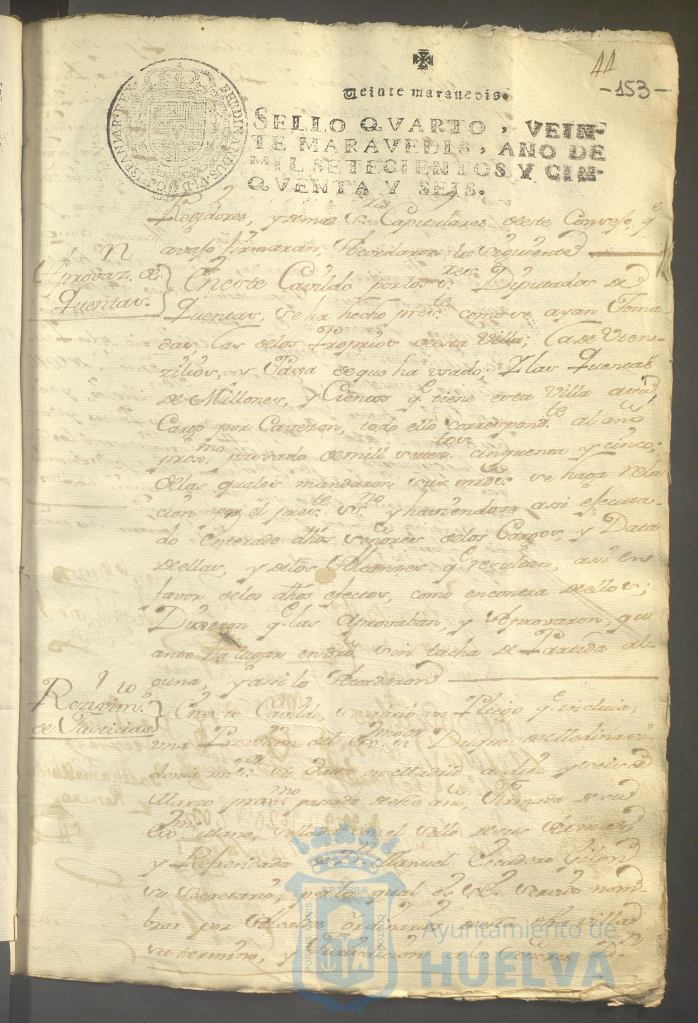 44
-153-
Veinte maravedis.
SELLO QVARTO, VEIN-
TE MARAVEDIS, AÑO DE
MIL SETECIENTOS Y CIN-
QVENTA Y SEIS.
Regidores, y demas s.res Capitulares deste Consejo q.e
avajo firmaran, Acordaron lo siguiente
Aprovaz.n de
quentas.
En este Cavildo por los s.res Diputados de
quentas, se ha hecho pres.te como se ayan toma-
das las de los Proprios de esta Villa, la de Uten-
zilios, y Paxa de que ha usado, y las quentas
de Millones, y Cientos q.e tiene esta Villa a su
Cargo por Cavezon, todo ello correspond.te al año
prox.mo passado de mill setez.tos cinquenta y cinco;
de las quales mandaron sus mrds. se haga rela
cion por el pres.te ss.no y haviendose assi efecuta-
do enterado dhos señores de los Cargos, y Data
de ellas, y de los Alcanzes q.e resultan, assi en
favor de los dhos efectos, como en contra de ellos;
Dixeron q.e las Aprovaban, y Aprovaron, qu
anto ha lugar en dro, sin tacha de Partida al-
guna, y assi lo Acordaron
Rezivim.to
de Justicias
En este Cavildo, se abrió un Pliego q.e incluia,
una Provision del Ex.mo s.or Duque de Medina si-
donia mi s.or su data en Madrid a diez y seis de
Marzo prox.mo pasado deste año, firmada de su
Ex.a sellada con el sello de sus Armas
y Refrendada de D.n Manuel Escudero
su Secretario, por la qual el s.or es servido nom-
brar por Alcaldes ordinarios de esta dha villa
su termino, y Jurisdicion a los señores D.n
Ayuntamiento de
HUELVA